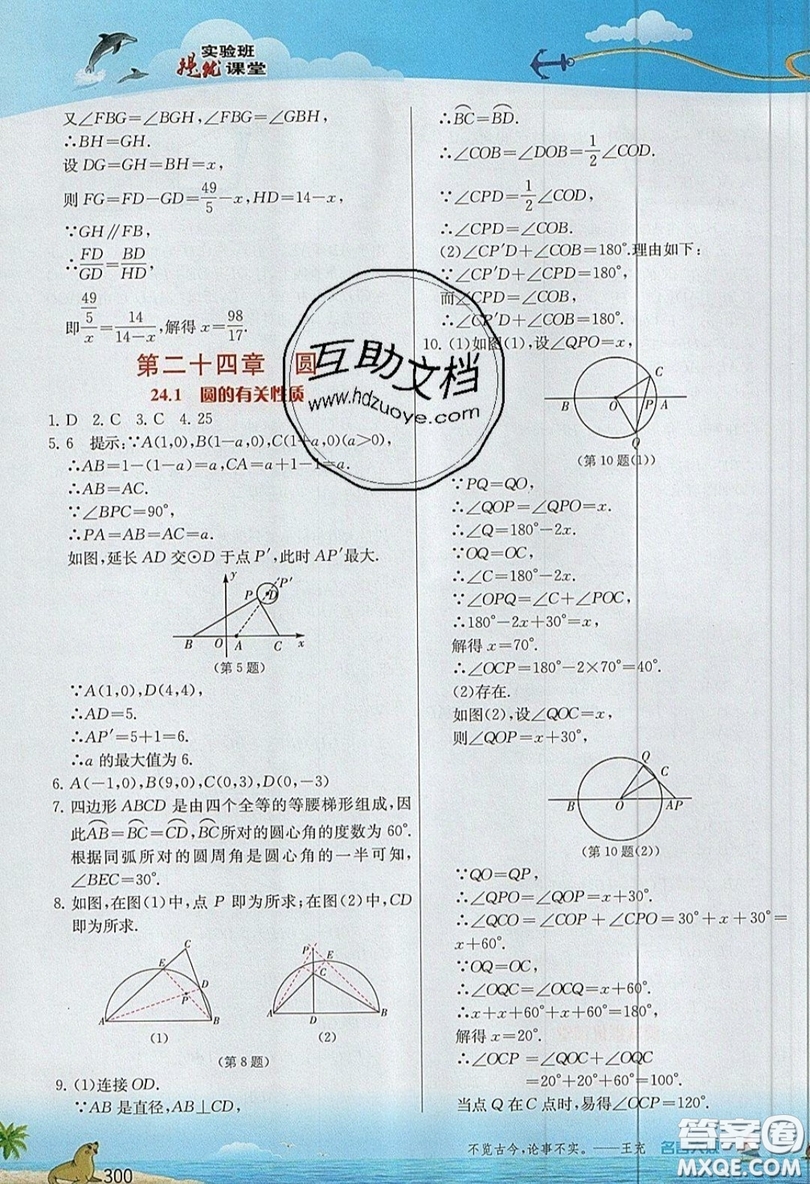 实验班
提优课堂
又∠FBG=∠BGH,∠FBG=∠GBH,
∴BH=GH.
设DG=GH=BH=x,
则FG=FD−GD=49/5−x,HD=14−x,
∵GH∥FB,
∴FD/GD=BD/HD,
即(49/5)/x=14/(14−x),解得x=98/17.
第二十四章 圆
24.1 圆的有关性质
1. D 2. C 3. C 4. 25
5. 6 提示:∵A(1,0),B(1−a,0),C(1+a,0)(a>0),
∴AB=1−(1−a)=a,CA=a+1−1=a.
∴AB=AC.
∵∠BPC=90°,
∴PA=AB=AC=a.
如图,延长AD交⊙D于点P′,此时AP′最大.
y P′
P D
B O A C x
(第5题)
∵A(1,0),D(4,4),
∴AD=5.
∴AP′=5+1=6.
∴a的最大值为6.
6. A(−1,0),B(9,0),C(0,3),D(0,−3)
7. 四边形ABCD是由四个全等的等腰梯形组成,因
此AB⌒=BC⌒=CD⌒,BC⌒所对的圆心角的度数为60°.
根据同弧所对的圆周角是圆心角的一半可知,
∠BEC=30°.
8. 如图,在图(1)中,点P即为所求;在图(2)中,CD
即为所求.
C E D P A B
P E C A D B
(1) (2)
(第8题)
9. (1)连接OD.
∵AB是直径,AB⊥CD,
∴BC⌒=BD⌒.
∴∠COB=∠DOB=1/2∠COD.
∵∠CPD=1/2∠COD,
∴∠CPD=∠COB.
(2)∠CP′D+∠COB=180°.理由如下:
∵∠CP′D+∠CPD=180°,
而∠CPD=∠COB,
∴∠CP′D+∠COB=180°.
10. (1)如图(1),设∠QPO=x,
C
B O P A
Q
(第10题(1))
∵PQ=QO,
∴∠QOP=∠QPO=x.
∴∠Q=180°−2x.
∵OQ=OC,
∴∠C=180°−2x.
∵∠OPQ=∠C+∠POC,
∴180°−2x+30°=x,
解得x=70°.
∴∠OCP=180°−2×70°=40°.
(2)存在.
如图(2),设∠QOC=x,
则∠QOP=x+30°,
Q
C
B O AP
(第10题(2))
∵QO=QP,
∴∠QPO=∠QOP=x+30°.
∴∠QCO=∠COP+∠CPO=30°+x+30°=
x+60°.
∵OQ=OC,
∴∠OQC=∠OCQ=x+60°.
∴x+x+60°+x+60°=180°,
解得x=20°.
∴∠OCP=∠QOC+∠OQC
=20°+20°+60°=100°.
当点Q在C点时,易得∠OCP=120°.
互助文档
www.hdzuoye.com
300
不览古今,论事不实。——王充
答案圈
MXQE.COM